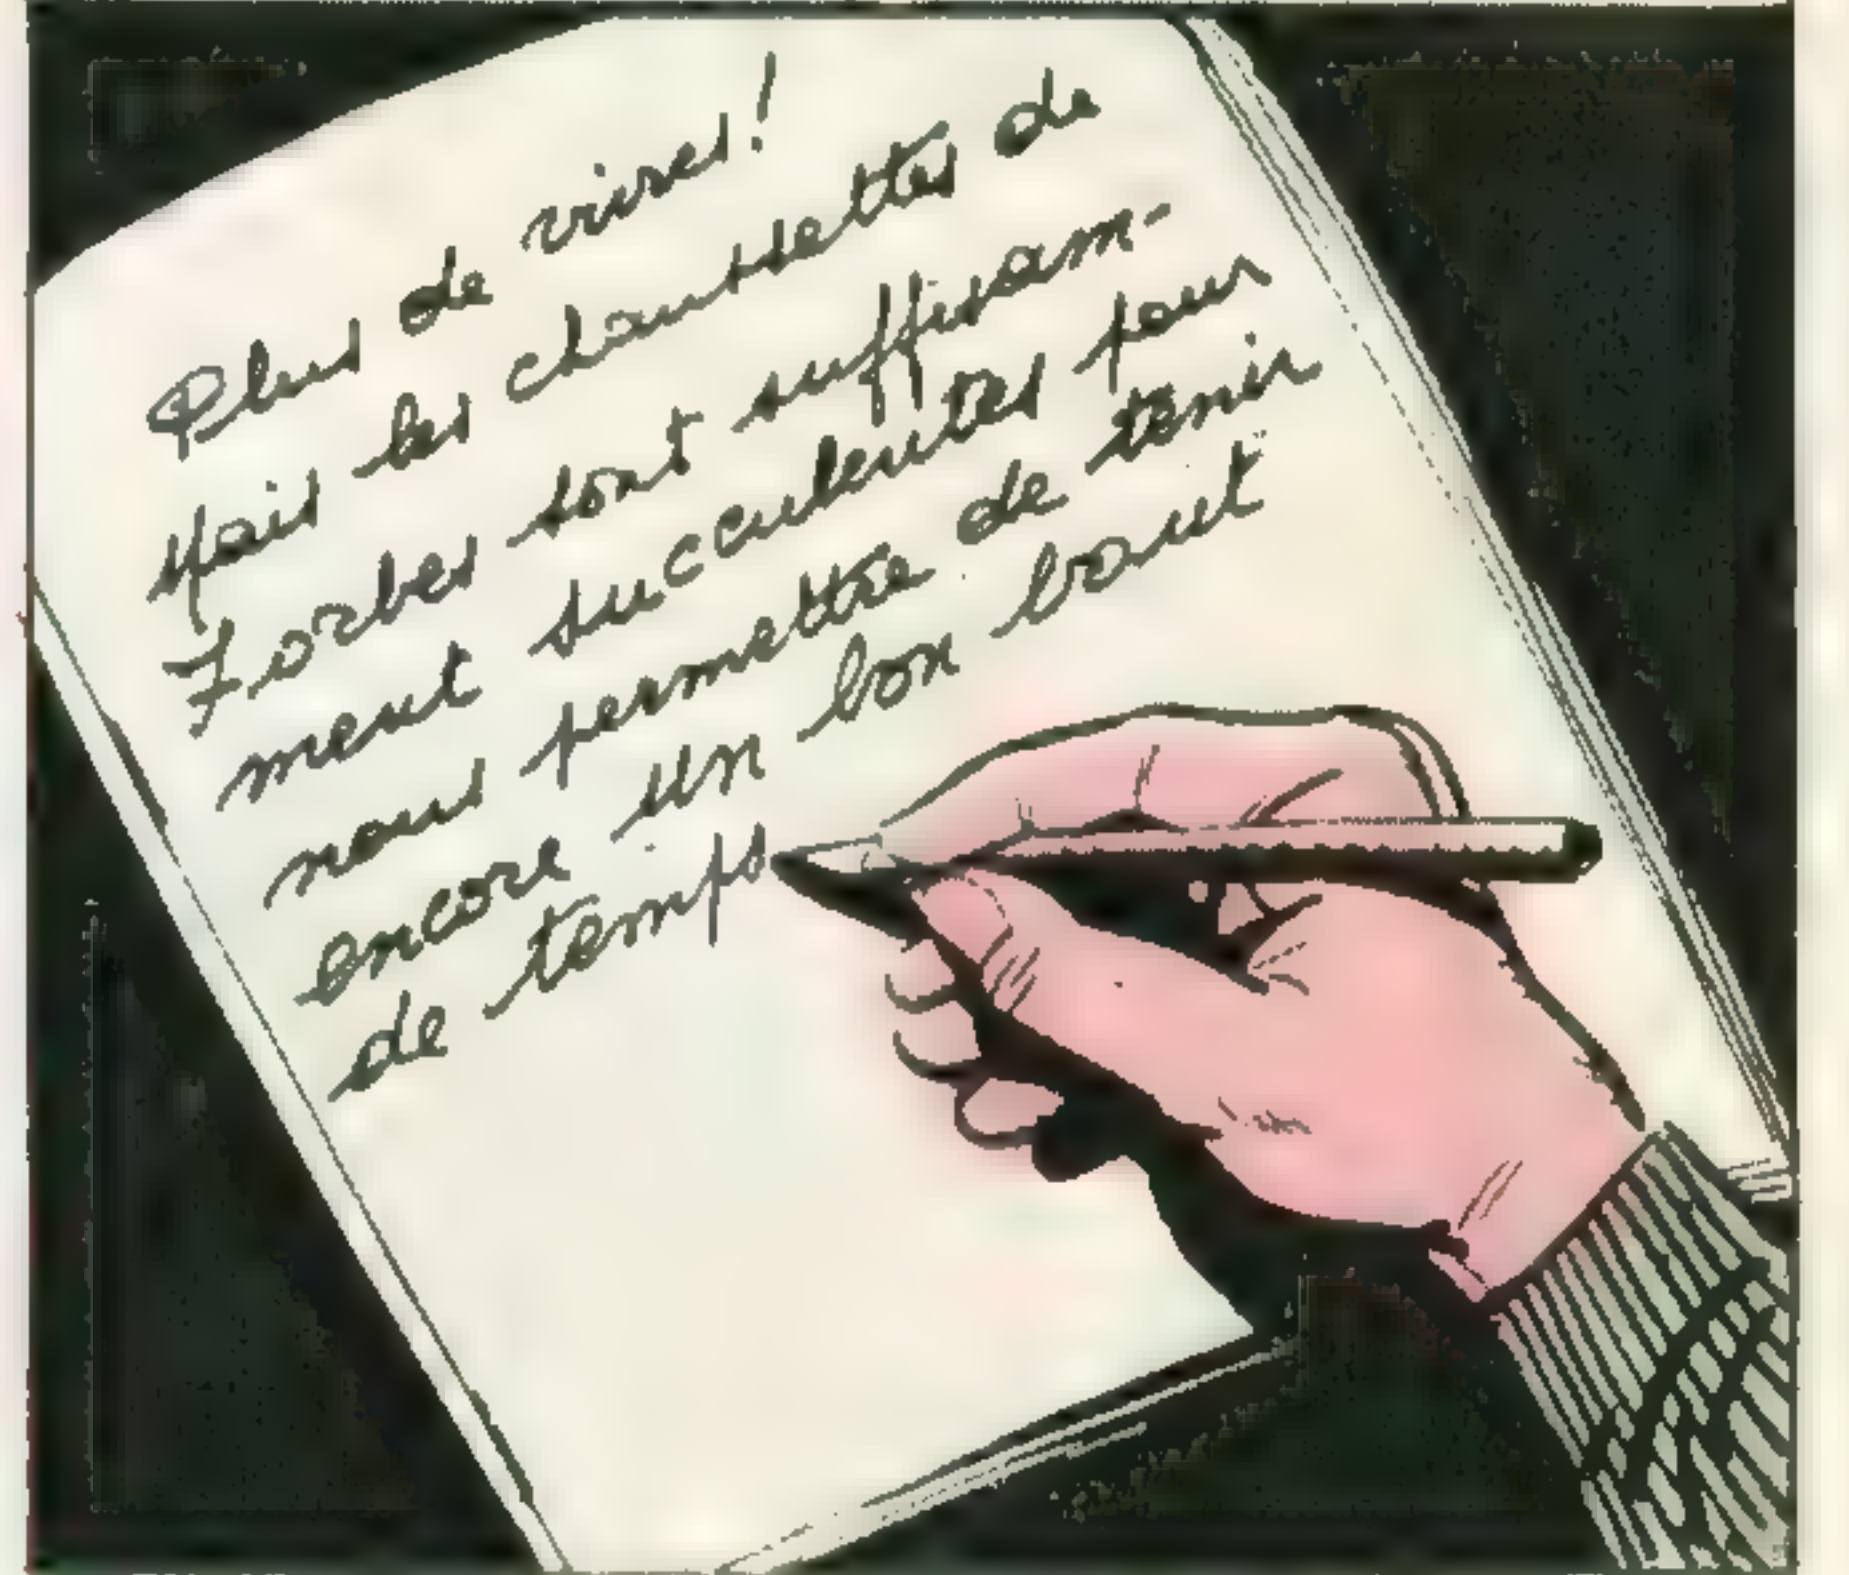 Plus de vivres!
Mais les chaussettes de
Forbes sont suffisam-
ment succulentes pour
nous permettre de tenir
encore un bon bout
de temps